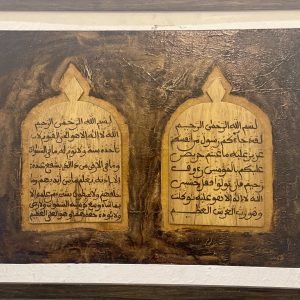 بسم الله الرحمن الرحيم
لقد جاءكم رسول من انفسكم
عزيز عليه ما عنتم حريص
عليكم بالمؤمنين رءوف
رحيم فإن تولوا فقل حسبي
الله لا اله الا هو عليه توكلت
وهو رب العرش العظيم
بسم الله الرحمن الرحيم
الله لا اله الا هو الحي القيوم لا
تأخذه سنة ولا نوم له ما في السموات
وما في الارض من ذا الذي يشفع عنده
الا باذنه يعلم ما بين ايديهم وما
خلفهم ولا يحيطون بشيء من علمه الا
بما شاء وسع كرسيه السموات والارض
ولا يئوده حفظهما وهو العلي العظيم